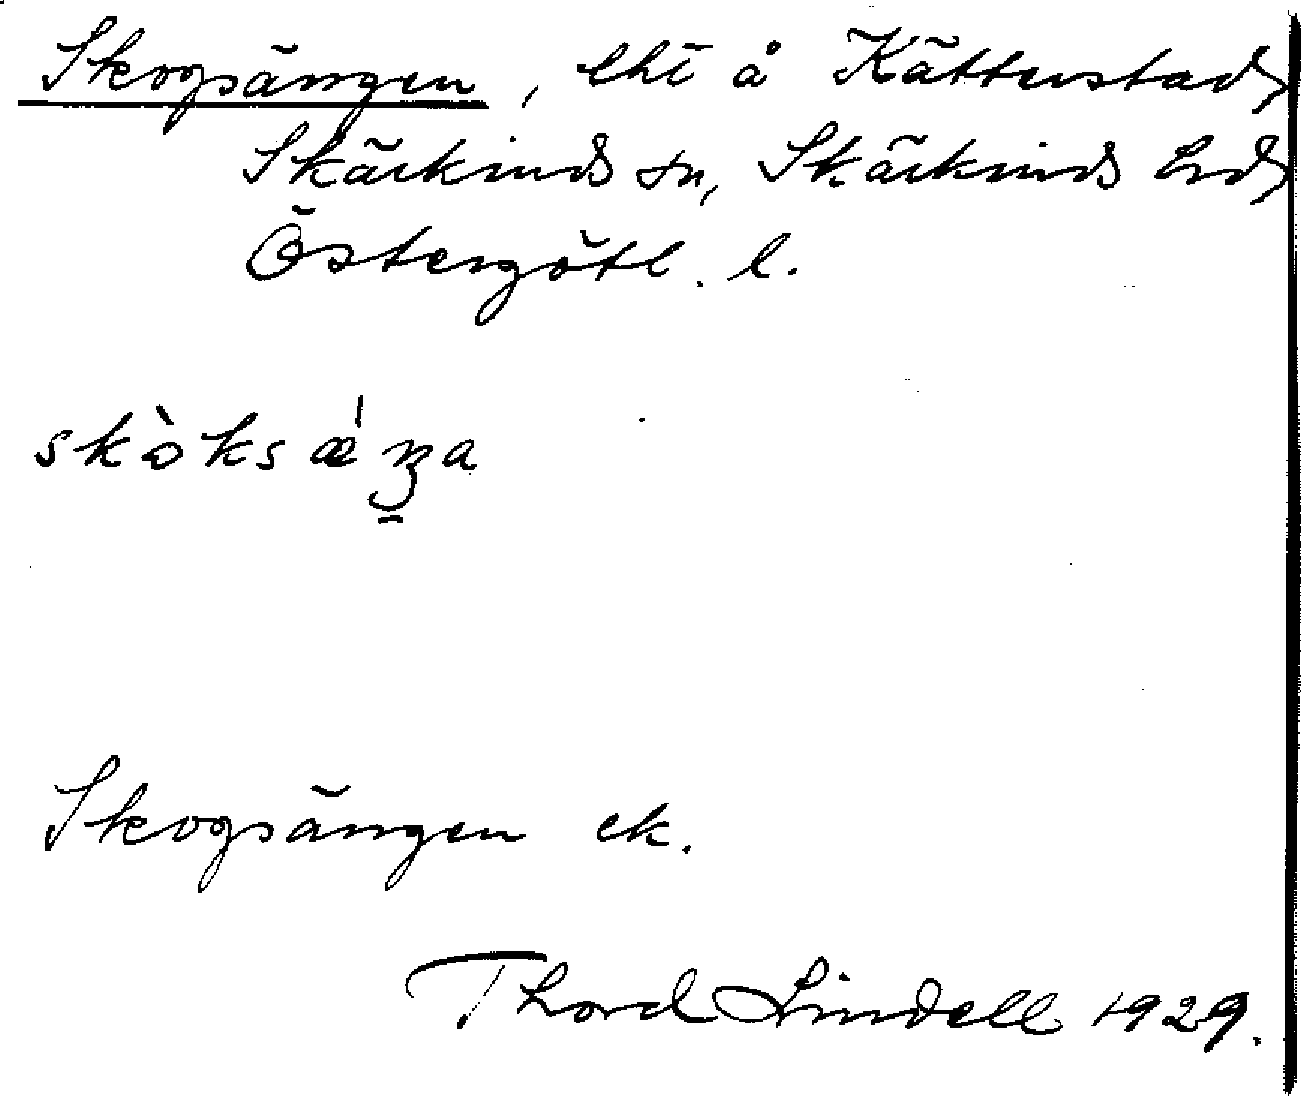 Skogsängen, lht å Kättestad,
Skärkinds sn, Skärkinds hd,
Östergötl. l.
Skogsängen ek.
Thord Lindell 1929.